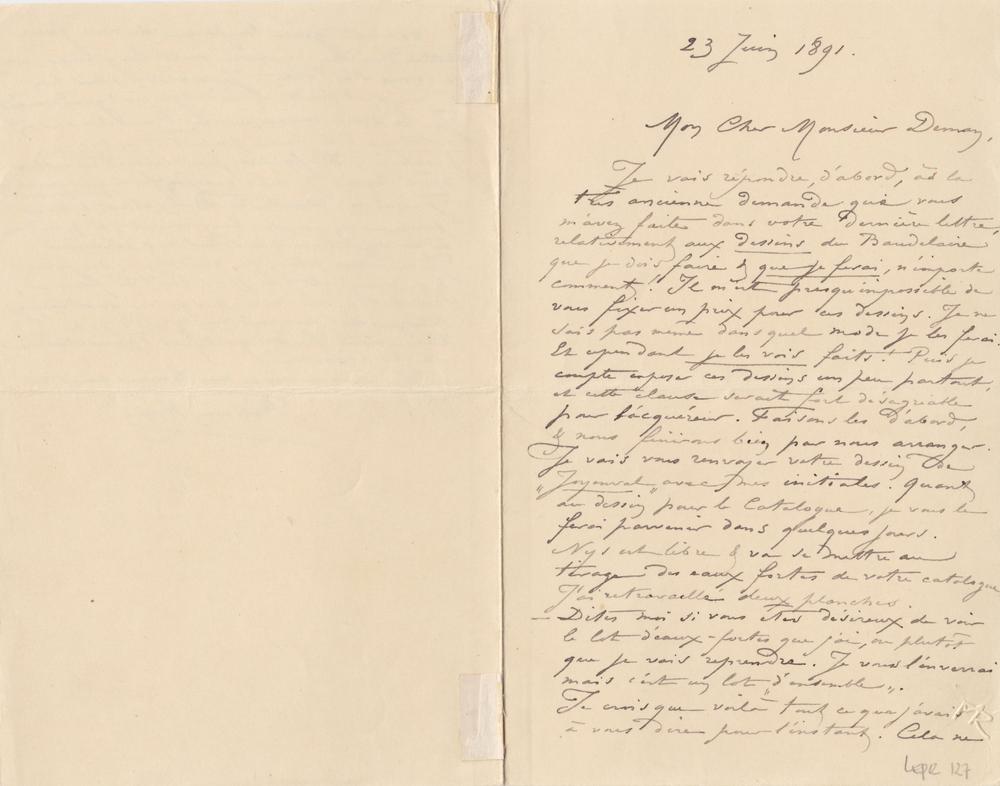 23 Juin 1891.
Mon Cher Monsieur Deman,
Je vais répondre, d'abord, à la
très ancienne demande que vous
m'avez faite dans votre dernière lettre,
relativement aux dessins du Baudelaire
que je dois faire & que je ferai, n'importe
comment! Il m'est presqu'impossible de
vous fixer un prix pour ces dessins. Je ne
sais pas même dans quel mode je les ferai.
Et cependant je les vois faits! Puis je
compte exposer ces dessins un peu partout,
et cette clause serait fort désagréable
pour l'acquéreur. Faisons les d'abord,
& nous finirons bien par nous arranger.
Je vais vous renvoyer votre dessin de
"Joyeuval" avec mes initiales. Quant
au dessin pour le Catalogue, je vous le
ferai parvenir dans quelques jours.
Nys est libre & va se mettre au
tirage des eaux fortes de votre catalogue
J'ai retravaillé deux planches.
— Dites moi si vous êtes désireux de voir
le lot d'eaux-fortes que j'ai, ou plutôt
que je vais reprendre. Je vous l'enverrai
mais c'est un lot "d'ensemble".
Je crois que voilà tout ce que j'avais
à vous dire pour l'instant. Cela ne
127